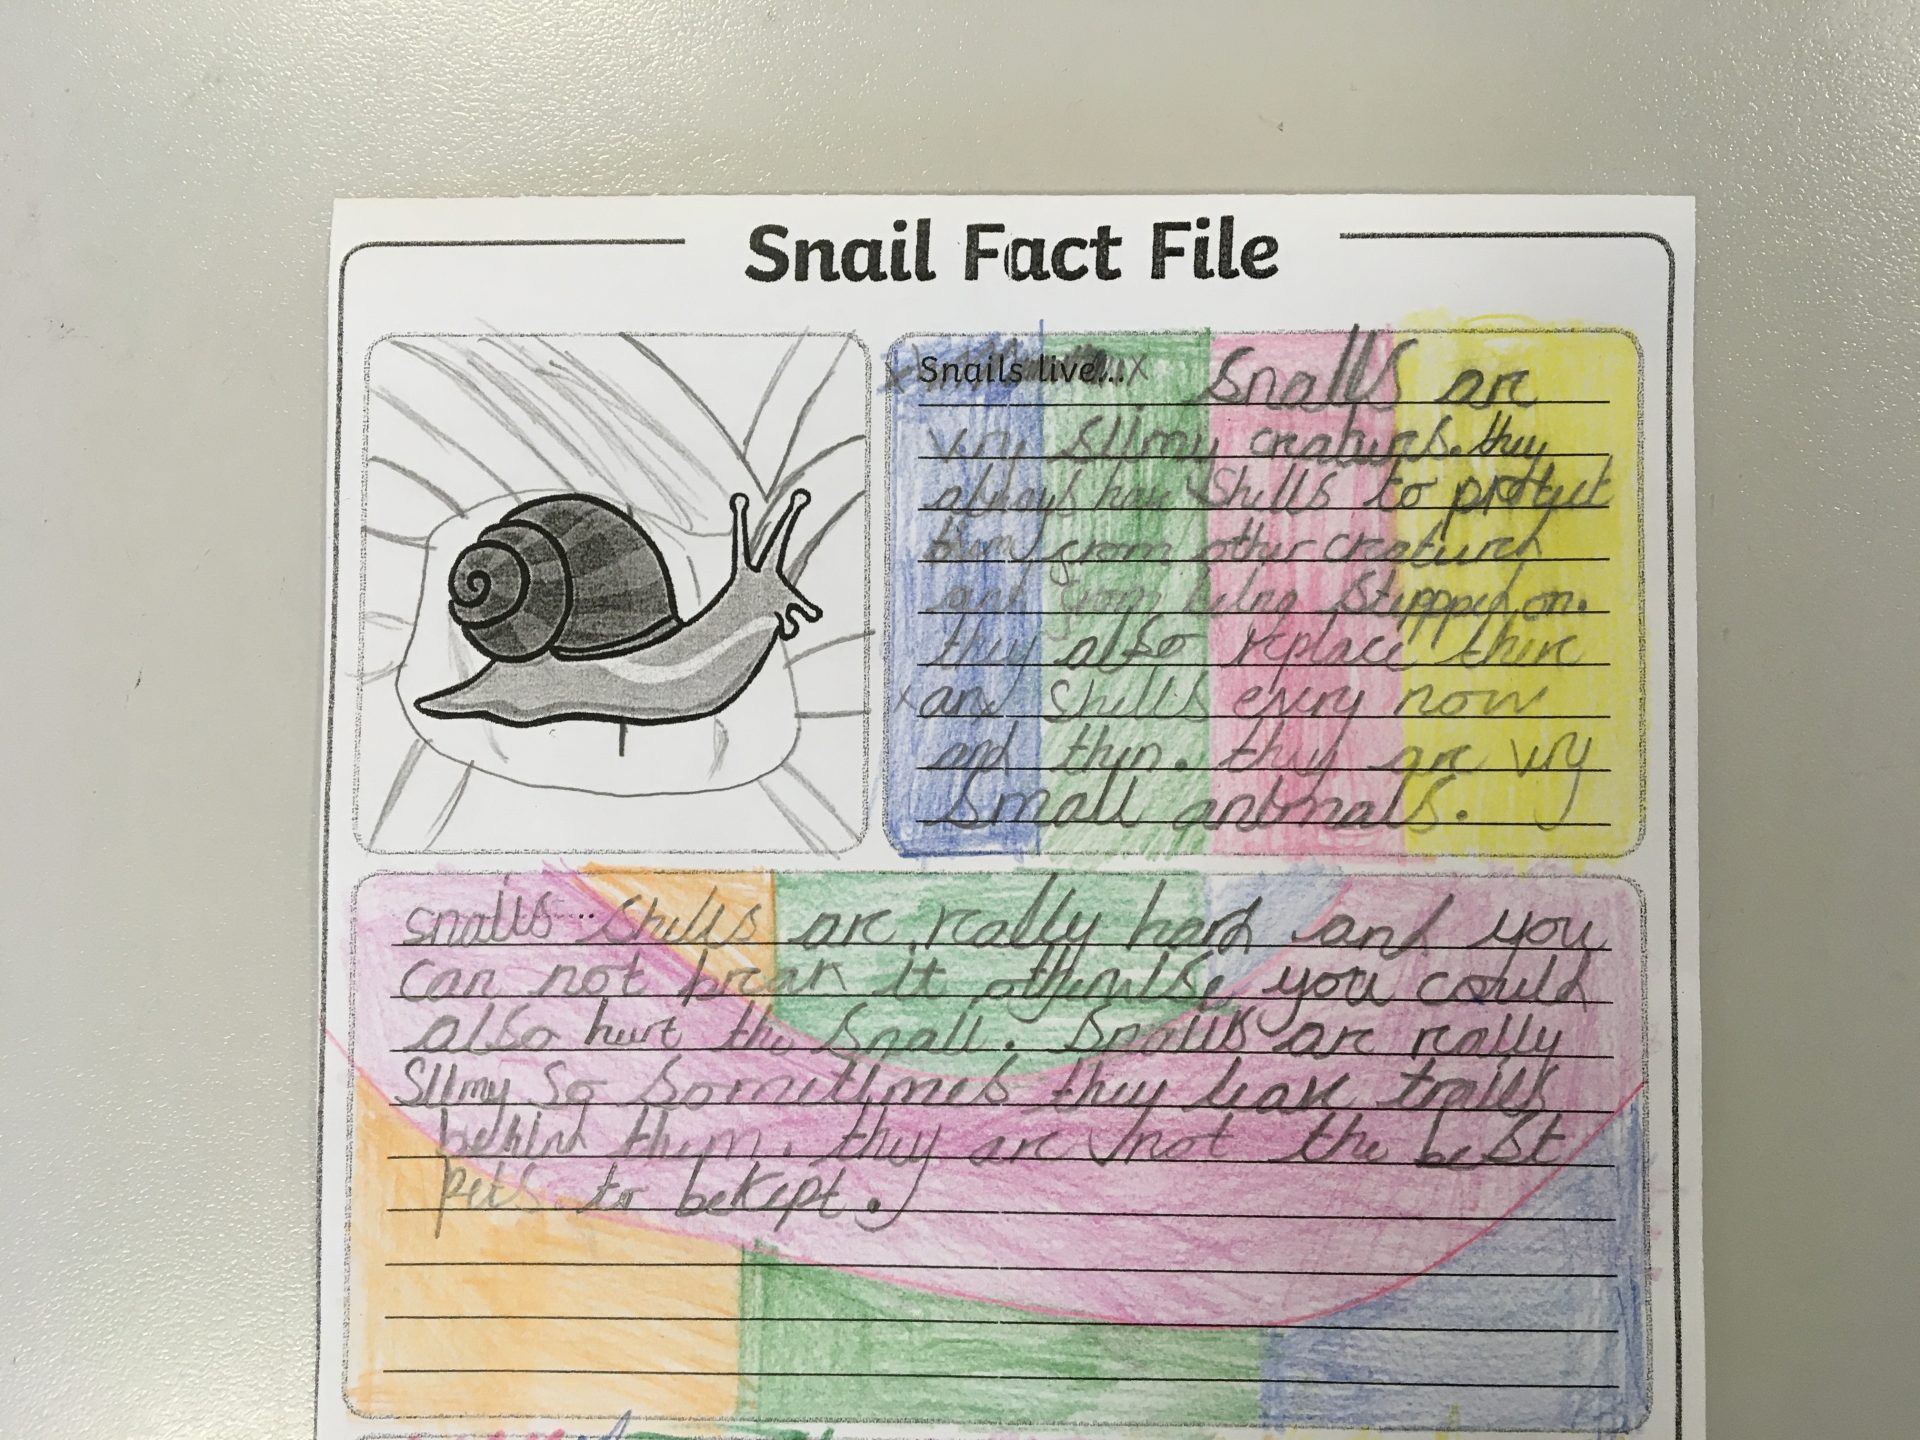 Snail Fact File
Snails live... Snails are
very slimy creaturs. they
always have shells to protect
them from other creatures
and from being steppped on.
they also replace there
and shells every now
and then. they are very
small animals.
snails... shells are really hard and you
can not break it otherwise you could
also hurt the snail. Snails are really
slimy so sometimes they leave trails
behind them. they are not the best
pets to be kept.